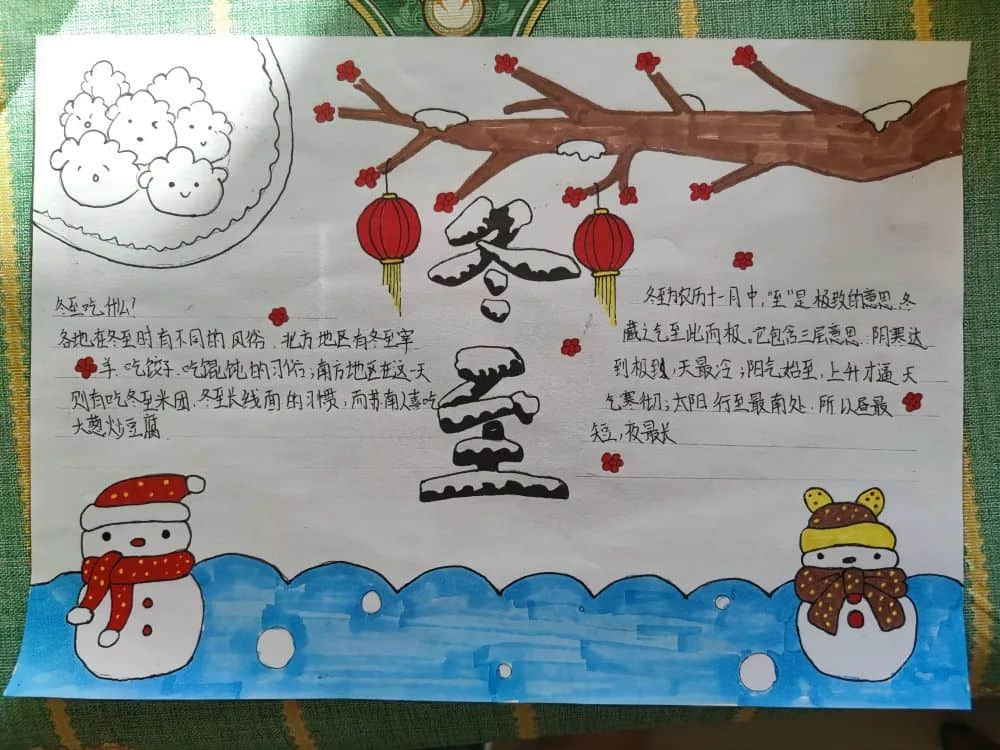 冬至
冬至吃什么?
各地在冬至时有不同的风俗.北方地区有冬至宰
羊.吃饺子.吃馄饨的习俗;南方地区在这一天
则有吃冬至米团.冬至长线面的习惯,而苏南人喜吃
大葱炒豆腐.
冬至为农历十一月中,"至"是极致的意思.冬
藏之气至此而极。它包含三层意思.阴寒达
到极致,天最冷;阳气始至,上升才通天
气寒彻;太阳行至最南处.所以昼最
短,夜最长